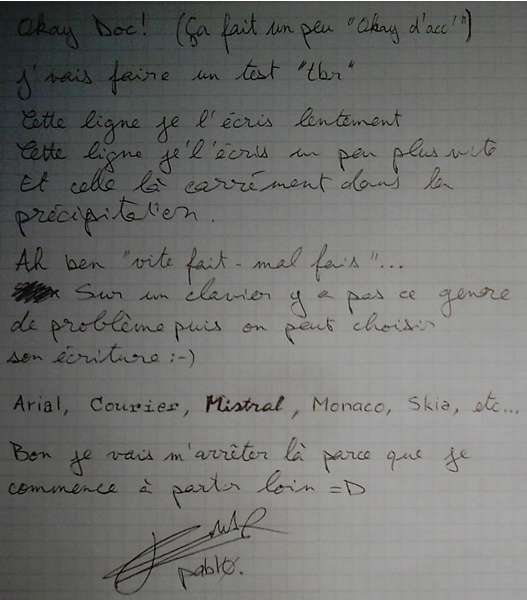 Okay Doc! (Ça fait un peu "Okay d'acc'")
j'vais faire un test "tbr"
Cette ligne je l'écris lentement
Cette ligne je l'écris un peu plus vite
Et celle là carrément dans la
précipitat'on.
Ah ben "vite fait - mal fais"...
Sur un clavier y a pas ce genre
de problème puis on peut choisir
son écriture :-)
Arial, Courier, Mistral, Monaco, Skia, etc...
Bon je vais m'arrêter là parce que je
commence à partir loin =D
pablo.